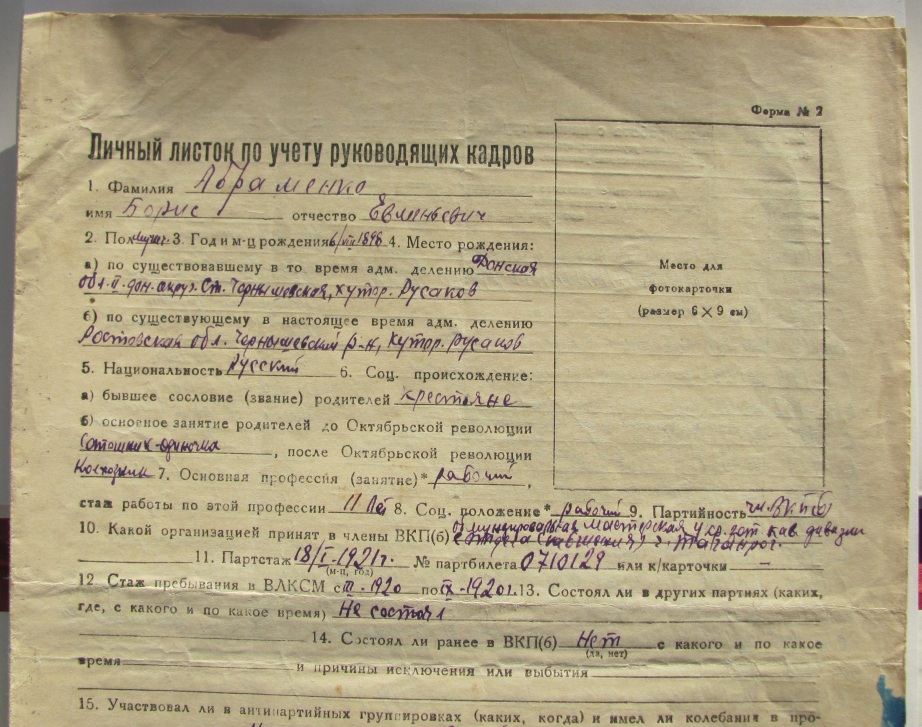 Форма № 2
Личный листок по учету руководящих кадров
1. Фамилия Абраменко
имя Борис отчество Евменьевич
2. Пол муж. 3. Год и м-ц рождения 6/VIII 1898 4. Место рождения:
а) по существовавшему в то время адм. делению Донская
обл. II. дон. округ. Ст. Чернышевская, хутор. Русаков
б) по существующему в настоящее время адм. делению
Ростовская обл. Чернышевский р-н, хутор. Русаков
5. Национальность Русский 6. Соц. происхождение:
а) бывшее сословие (звание) родителей крестьяне
б) основное занятие родителей до Октябрьской революции
одиночка, после Октябрьской революции
Колхозник 7. Основная профессия (занятие)* рабочий,
стаж работы по этой профессии 11 лет 8. Соц. положение* рабочий 9. Партийность чл. ВКП(б)
10. Какой организацией принят в члены ВКП(б) мастерская кав. дивизии
г. Таганрог.
11. Партстаж 18/I-1921г. № партбилета 0710129 или к/карточки —
(м-ц, год)
12 Стаж пребывания в ВЛКСМ с III-1920 по IX-1920г. 13. Состоял ли в других партиях (каких,
где, с какого и по какое время) Не состоял
14. Состоял ли ранее в ВКП(б) Нет с какого и по какое
(да, нет)
время и причины исключения или выбытия
15. Участвовал ли в антипартийных группировках (каких, когда) и имел ли колебания в про-
Место для
фотокарточки
(размер 6×9 см)